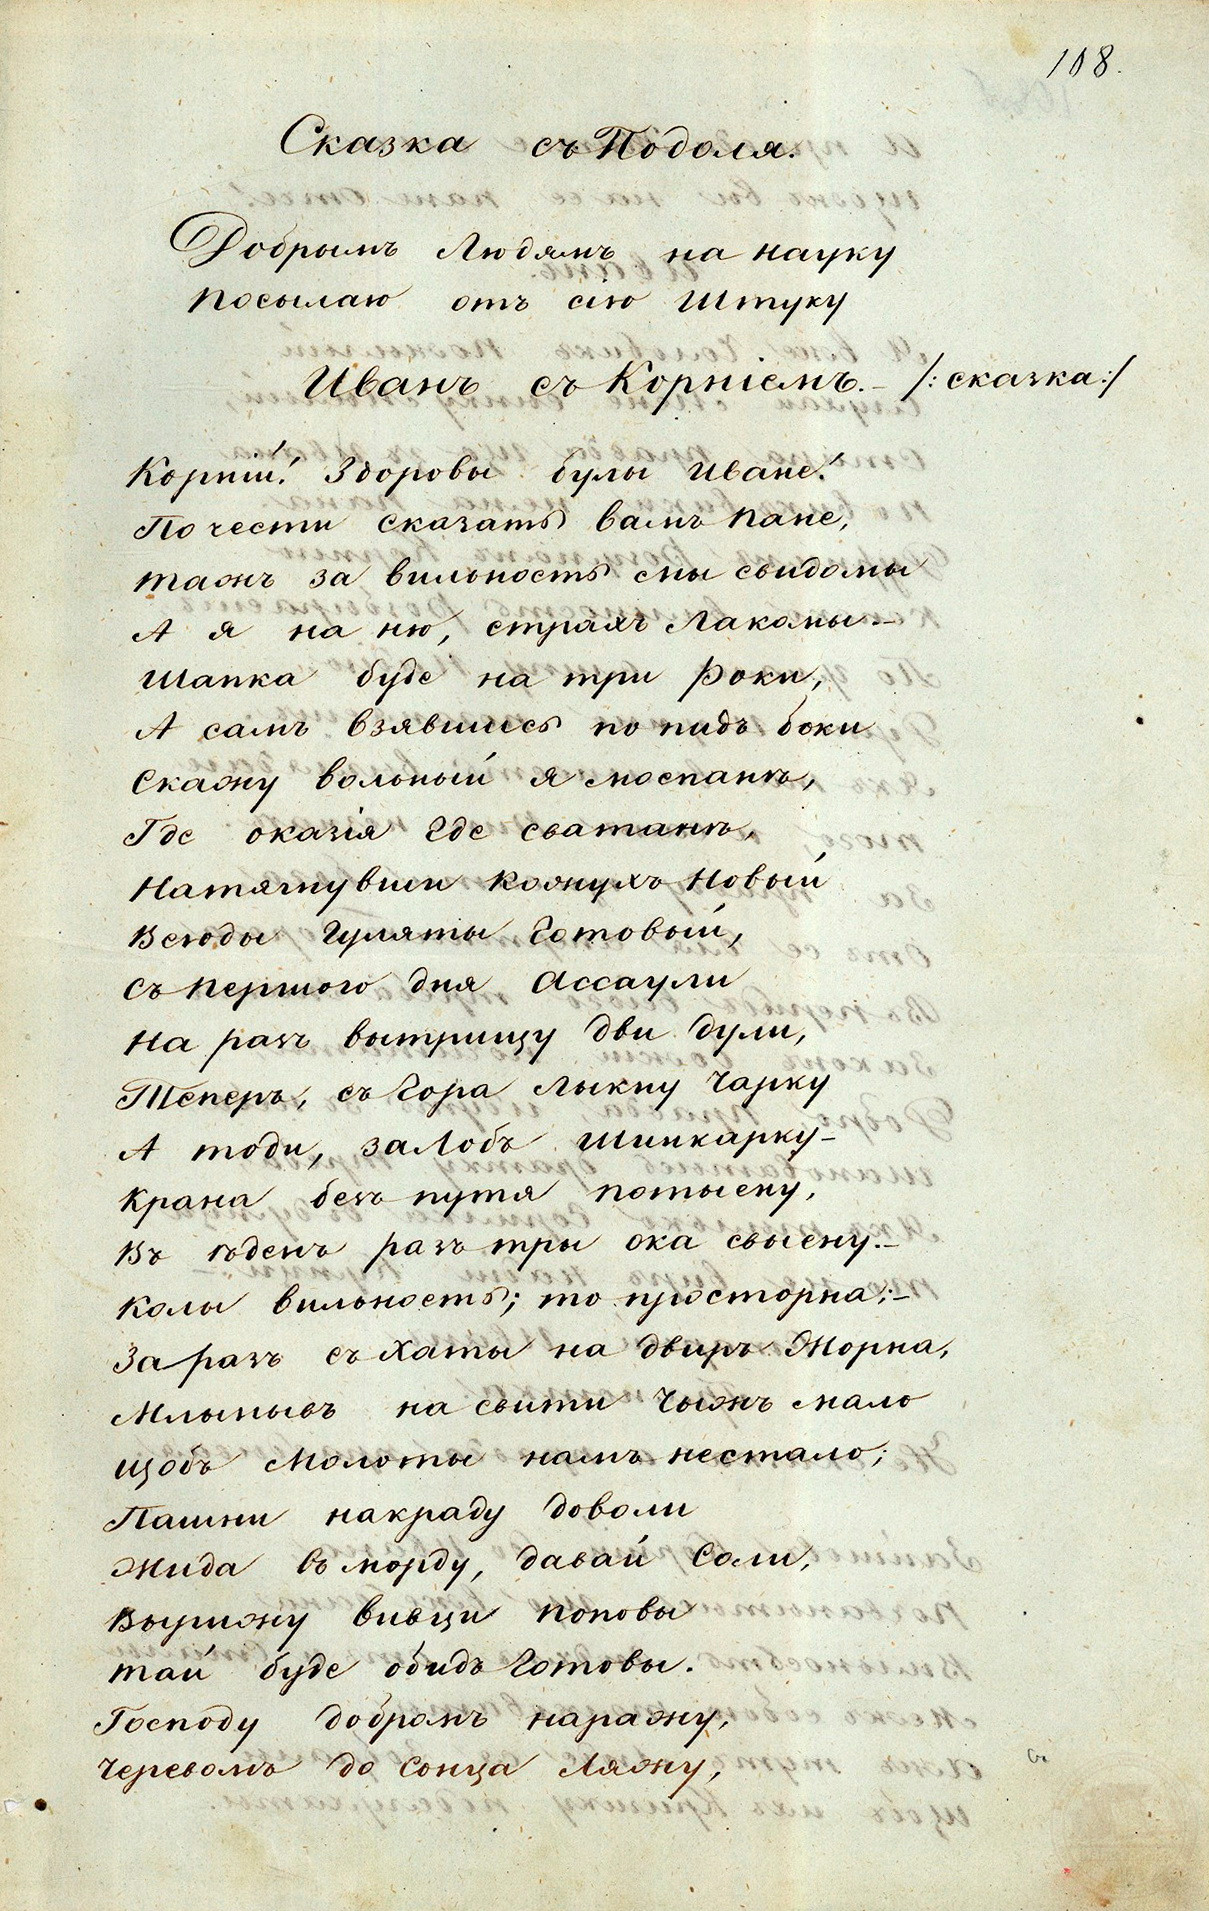 108.
Сказка съ Подоля.
Добрымъ Людямъ на науку
посылаю отъ сію Штуку
Иванъ съ Корніемъ. – /: сказка :/
Корній! Здоровы булы Иване!
По чести сказать вамъ пане,
тажъ за вильность мы свидомы
А я на ню, страхъ Лакомы. –
Шапка буде на три Роки,
А самъ взявшись по пидъ боки
Скажу вольный я моспанъ,
Где оказія где сватанъ,
Натягнувши кожухъ новый
Всюды гуляты готовый,
Съ першого дня Ассаули
На разъ вытрищу дви дули,
Теперъ, съ гора лыкну Чарку
А тоди, за Лобъ Шинкарку –
Крана безъ путя потысну,
Въ еденъ разъ тры ока свысну. –
Колы вильность; то просторна; –
За разъ съ Хаты на двиръ Жорна,
Млынывъ на свити Чыжъ мало
щобъ Молоты намъ нестало;
Пашни накраду доволи
Жида въ морду, давай Соли,
Вырижу вивци поповы
тай буде обидъ готовы.
Господу добромъ наражу,
Черевомъ до Сонца Ляжу,